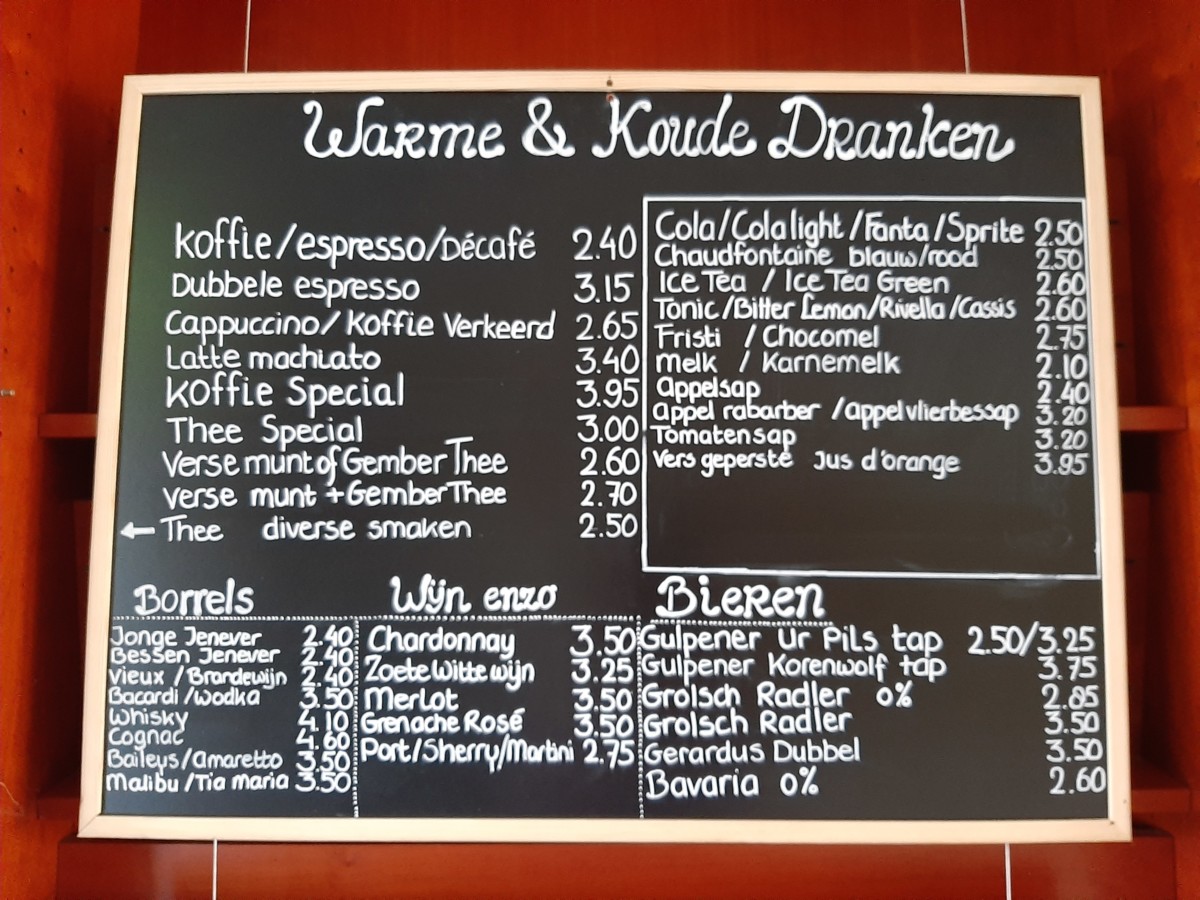 Warme & Koude Dranken
Koffie/espresso/Décafé 2.40
Dubbele espresso 3.15
Cappuccino/Koffie Verkeerd 2.65
Latte machiato 3.40
Koffie Special 3.95
Thee Special 3.00
Verse munt of Gember Thee 2.60
Verse munt + Gember Thee 2.70
← Thee diverse smaken 2.50
Cola/Cola light/Fanta/Sprite 2.50
Chaudfontaine blauw/rood 2.50
Ice Tea / Ice Tea Green 2.60
Tonic/Bitter Lemon/Rivella/Cassis 2.60
Fristi / Chocomel 2.75
Melk / Karnemelk 2.10
Appelsap 2.40
Appel rabarber /appelvlierbessap 3.20
Tomatensap 3.20
Vers geperste Jus d'orange 3.95
Borrels
Jonge Jenever 2.40
Bessen Jenever 2.40
Vieux /Brandewijn 2.40
Bacardi /Wodka 3.50
Whisky 4.10
Cognac 4.60
Baileys/Amaretto 3.50
Malibu /Tia maria 3.50
Wijn enzo
Chardonnay 3.50
Zoete Witte wijn 3.25
Merlot 3.50
Grenache Rosé 3.50
Port/Sherry/Martini 2.75
Bieren
Gulpener Ur Pils tap 2.50/3.25
Gulpener Korenwolf tap 3.75
Grolsch Radler 0% 2.85
Grolsch Radler 3.50
Gerardus Dubbel 3.50
Bavaria 0% 2.60